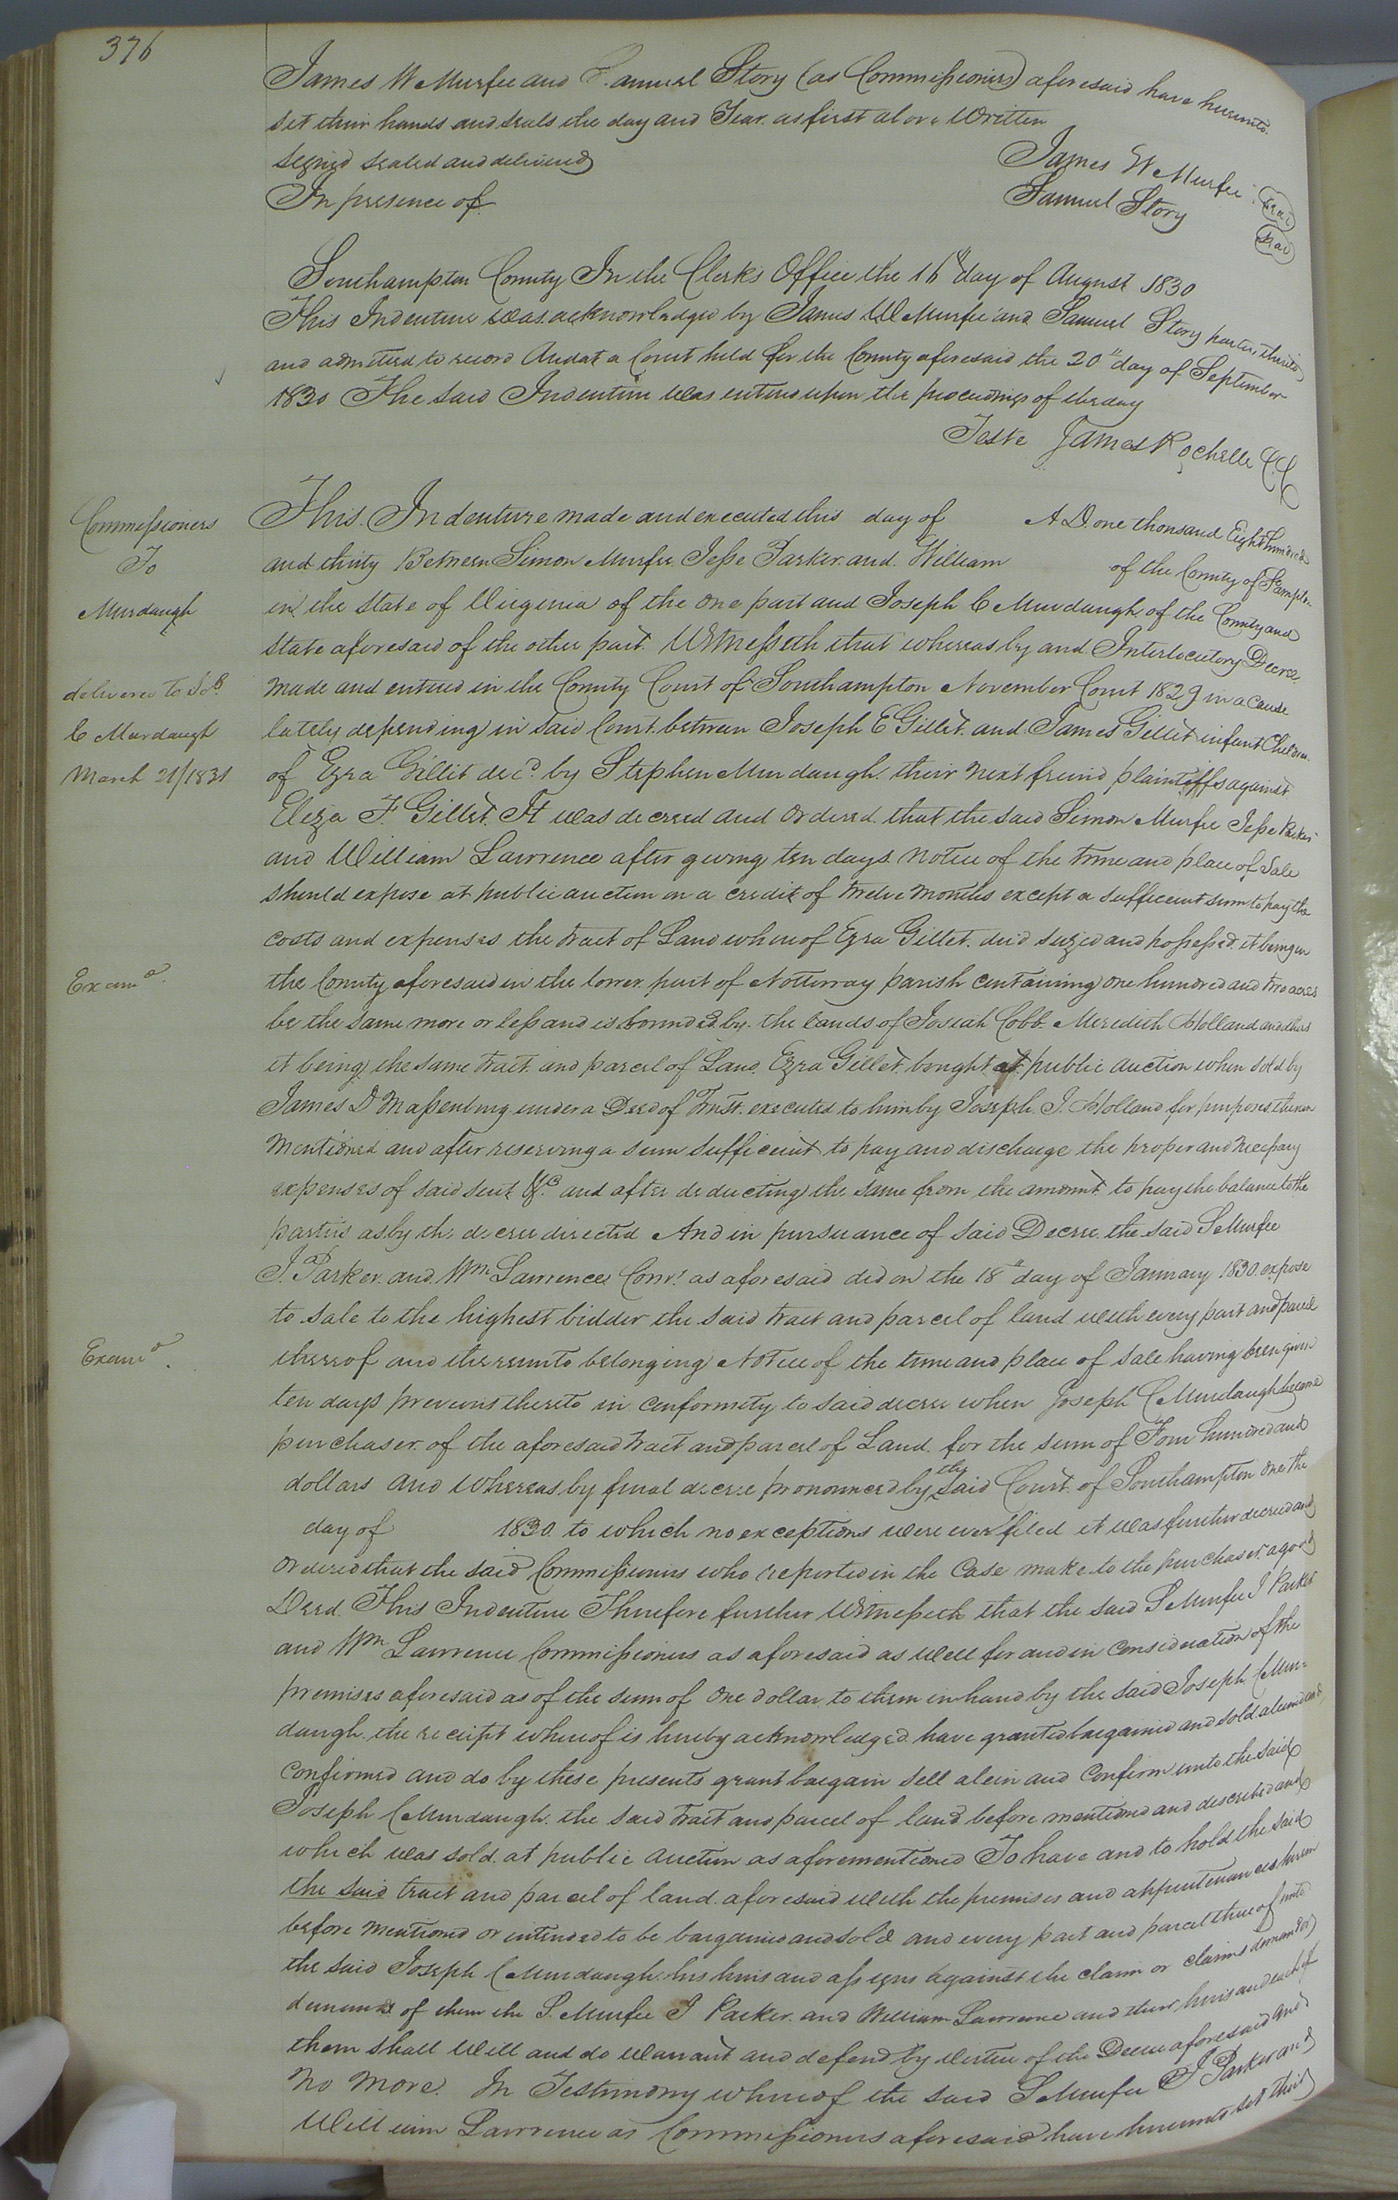 376
James W Murfee and Samuel Story (as Commissioners) aforesaid have hereunto
set their hands and seals the day and Year as first above Written
Signed sealed and delivered
In presence of
James W Murfee seal
Samuel Story seal
Southampton County In the Clerk's Office the 16th day of August 1830
This Indenture was acknowledged by James W Murfee and Samuel Story parties thereto
and admitted to record And at a Court held for the County aforesaid the 20th day of September
1830 The said Indenture was entered upon the proceedings of the day
Teste James Rochelle C.C
Commissioners
To
Murdaugh
delivered to Jos.
C Murdaugh
March 21/1831
Examd.
Examd.
This Indenture made and executed this day of A D one thousand Eight hundred
and thirty Between Simon Murfee Jesse Parker and William of the County of Sampton
in the State of Virginia of the one part and Joseph C Murdaugh of the County and
State aforesaid of the other part Witnesseth that whereas by and Interlocutory Decree
made and entered in the County Court of Southampton November Court 1829 in a cause
lately depending in said Court between Joseph E Gillet and James Gillet infant Children
of Ezra Gillit decd. by Stephen Murdaugh their next freind plaintiffs against
Eliza F Gillet It was decreed and ordered that the said Simon Murfee Jesse Parker
and William Lawrence after giving ten days notice of the time and place of Sale
should expose at public auction on a credit of twelve months except a sufficeint sum to pay the
costs and expenses the tract of Land whereof Ezra Gillet died seized and possessed it being in
the County aforesaid in the lower part of Nottoway parish containing one hundred and two acres
be the same more or less and is bounded by the lands of Josiah Cobb Meredith Holland and others
it being the same tract and parcel of Land Ezra Gillet bought at public auction when sold by
James D Massenburg under a Deed of Trust executed to him by Joseph J. Holland for purposes therein
mentioned and after reserving a sum sufficeint to pay and discharge the proper and necessary
expenses of said suit &c and after deducting the same from the amount to pay the balance to the
parties as by the decree directed And in pursuance of said Decree the said S Murfee
J. Parker and Wm Lawrence Comrs as aforesaid did on the 18th day of January 1830 expose
to sale to the highest bidder the said tract and parcel of land with every part and parcel
thereof and thereunto belonging Notice of the time and place of sale having been given
ten days previous thereto in conformity to said decree when Joseph C Murdaugh became
purchaser of the aforesaid tract and parcel of Land for the sum of Four hundred and
dollars and Whereas by final decree pronounced by the said Court of Southampton one the
day of 1830 to which no exceptions were ever filed it was further decreed and
ordered that the said Commissioners who reported in the Case make to the purchaser a good
Deed This Indenture Therefore further Witnesseth that the said S Murfee J Parker
and Wm Lawrence Commissioners as aforesaid as well for and in consideration of the
premises aforesaid as of the sum of one dollar to them in hand by the said Joseph C Mur-
daugh the receipt whereof is hereby acknowledged have granted bargained and sold aleined and
confirmed and do by these presents grant bargain sell alein and confirm unto the said
Joseph C Murdaugh the said tract and parcel of land before mentioned and described and
which was sold at public auction as aforementioned To have and to hold the said
the said tract and parcel of land aforesaid with the premises and appurtenances herein
before mentioned or intended to be bargained and sold and every part and parcel thereof unto
the said Joseph C Murdaugh his heirs and assigns against the claim or claims demand or
demands of them the S. Murfee J Parker and William Lawrence and their heirs and each of
them shall Will and do warrant and defend by virtue of the Decree aforesaid and
no more. In Testimony whereof the said S Murfee J Parker and
William Lawrence as Commissioners aforesaid have hereunto set their